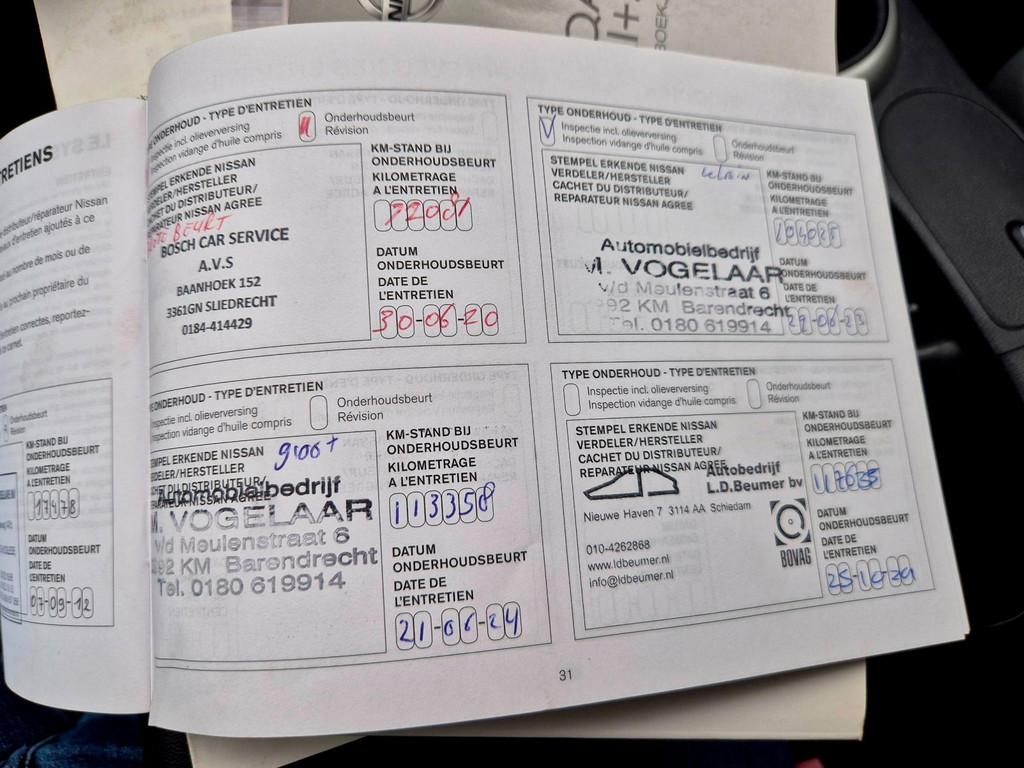 RETIENS
distributeur/réparateur Nissan
d'entretien ajoutés à ce
au nombre de mois ou de
prochain propriétaire du
entretien correctes, reportez-
Onderhoudsbeurt
Révision
KM-STAND BIJ
ONDERHOUDSBEURT
KILOMETRAGE
A L'ENTRETIEN
17478
DATUM
ONDERHOUDSBEURT
DATE DE
L'ENTRETIEN
07-09-12
ONDERHOUD - TYPE D'ENTRETIEN
Inspectie incl. olieverversing
Inspection vidange d'huile compris
Onderhoudsbeurt
Révision
STEMPEL ERKENDE NISSAN
VERDELER/HERSTELLER
CACHET DU DISTRIBUTEUR/
REPARATEUR NISSAN AGREE
BEURT
BOSCH CAR SERVICE
A.V.S
BAANHOEK 152
3361GN SLIEDRECHT
0184-414429
KM-STAND BIJ
ONDERHOUDSBEURT
KILOMETRAGE
A L'ENTRETIEN
72081
DATUM
ONDERHOUDSBEURT
DATE DE
L'ENTRETIEN
30-06-20
TYPE ONDERHOUD - TYPE D'ENTRETIEN
V
Inspectie incl. olieverversing
Inspection vidange d'huile compris
Onderhoudsbeurt
Révision
STEMPEL ERKENDE NISSAN
VERDELER/HERSTELLER
CACHET DU DISTRIBUTEUR/
REPARATEUR NISSAN AGREE
Automobielbedrijf
VOGELAAR
v/d Meulenstraat 6
92 KM Barendrecht
Tel. 0180 619914
KM-STAND BIJ
ONDERHOUDSBEURT
KILOMETRAGE
A L'ENTRETIEN
104028
DATUM
ONDERHOUDSBEURT
DATE DE
L'ENTRETIEN
ONDERHOUD - TYPE D'ENTRETIEN
Inspectie incl. olieverversing
Inspection vidange d'huile compris
Onderhoudsbeurt
Révision
STEMPEL ERKENDE NISSAN
VERDELER/HERSTELLER
CACHET DU DISTRIBUTEUR/
REPARATEUR NISSAN AGREE
groot
Automobielbedrijf
VOGELAAR
v/d Meulenstraat 6
92 KM Barendrecht
Tel. 0180 619914
KM-STAND BIJ
ONDERHOUDSBEURT
KILOMETRAGE
A L'ENTRETIEN
113358
DATUM
ONDERHOUDSBEURT
DATE DE
L'ENTRETIEN
21-06-24
TYPE ONDERHOUD - TYPE D'ENTRETIEN
Inspectie incl. olieverversing
Inspection vidange d'huile compris
Onderhoudsbeurt
Révision
STEMPEL ERKENDE NISSAN
VERDELER/HERSTELLER
CACHET DU DISTRIBUTEUR/
REPARATEUR NISSAN AGREE
Autobedrijf
L.D.Beumer bv
Nieuwe Haven 7 3114 AA Schiedam
010-4262868
www.ldbeumer.nl
info@ldbeumer.nl
BOVAG
KM-STAND BIJ
ONDERHOUDSBEURT
KILOMETRAGE
A L'ENTRETIEN
DATUM
ONDERHOUDSBEURT
DATE DE
L'ENTRETIEN
31